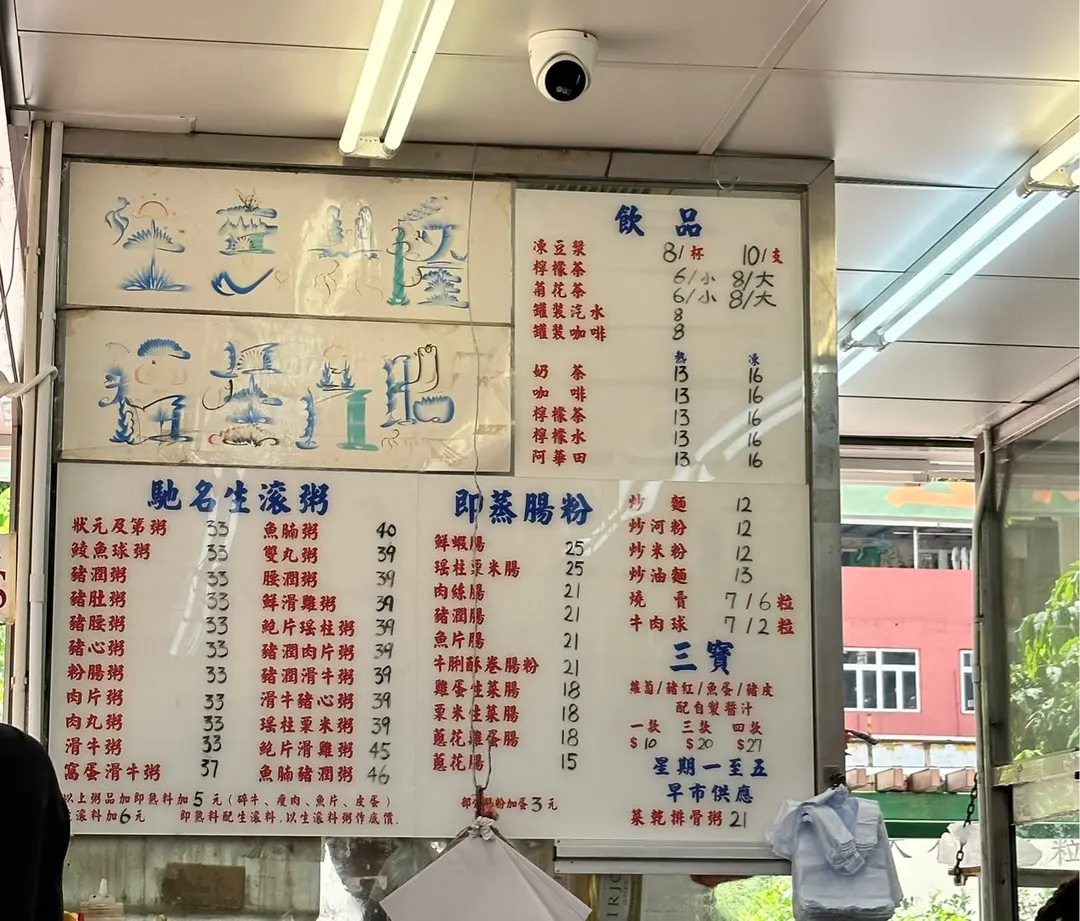 飲品
凍豆漿 8/杯 10/支
檸檬茶 6/小 8/大
菊花茶 6/小 8/大
罐裝汽水 8
罐裝咖啡 8
熱 凍
奶茶 13 16
咖啡 13 16
檸檬茶 13 16
檸檬水 13 16
阿華田 13 16
馳名生滾粥
狀元及第粥 33
鯪魚球粥 33
豬潤粥 33
豬肚粥 33
豬腰粥 33
豬心粥 33
粉腸粥 33
肉片粥 33
肉丸粥 33
滑牛粥 33
窩蛋滑牛粥 37
魚腩粥 40
雙丸粥 39
腰潤粥 39
鮮滑雞粥 39
鮑片瑤柱粥 39
豬潤肉片粥 39
豬潤滑牛粥 39
滑牛豬心粥 39
瑤柱粟米粥 39
鮑片滑雞粥 45
魚腩豬潤粥 46
以上粥品加即熟料加5元(碎牛、瘦肉、魚片、皮蛋)
滾料加6元 即熟料配生滾料,以生滾料粥作底價.
即蒸腸粉
鮮蝦腸 25
瑤柱粟米腸 25
肉絲腸 21
豬潤腸 21
魚片腸 21
牛脷酥卷腸粉 21
雞蛋生菜腸 18
粟米生菜腸 18
蔥花雞蛋腸 18
蔥花腸 15
腸粉加蛋3元
炒麵 12
炒河粉 12
炒米粉 12
炒油麵 13
燒賣 7/6粒
牛肉球 7/2粒
三寶
蘿蔔/豬紅/魚蛋/豬皮
配自製醬汁
一款 三款 四款
$10 $20 $27
星期一至五
早市供應
菜乾排骨粥 21